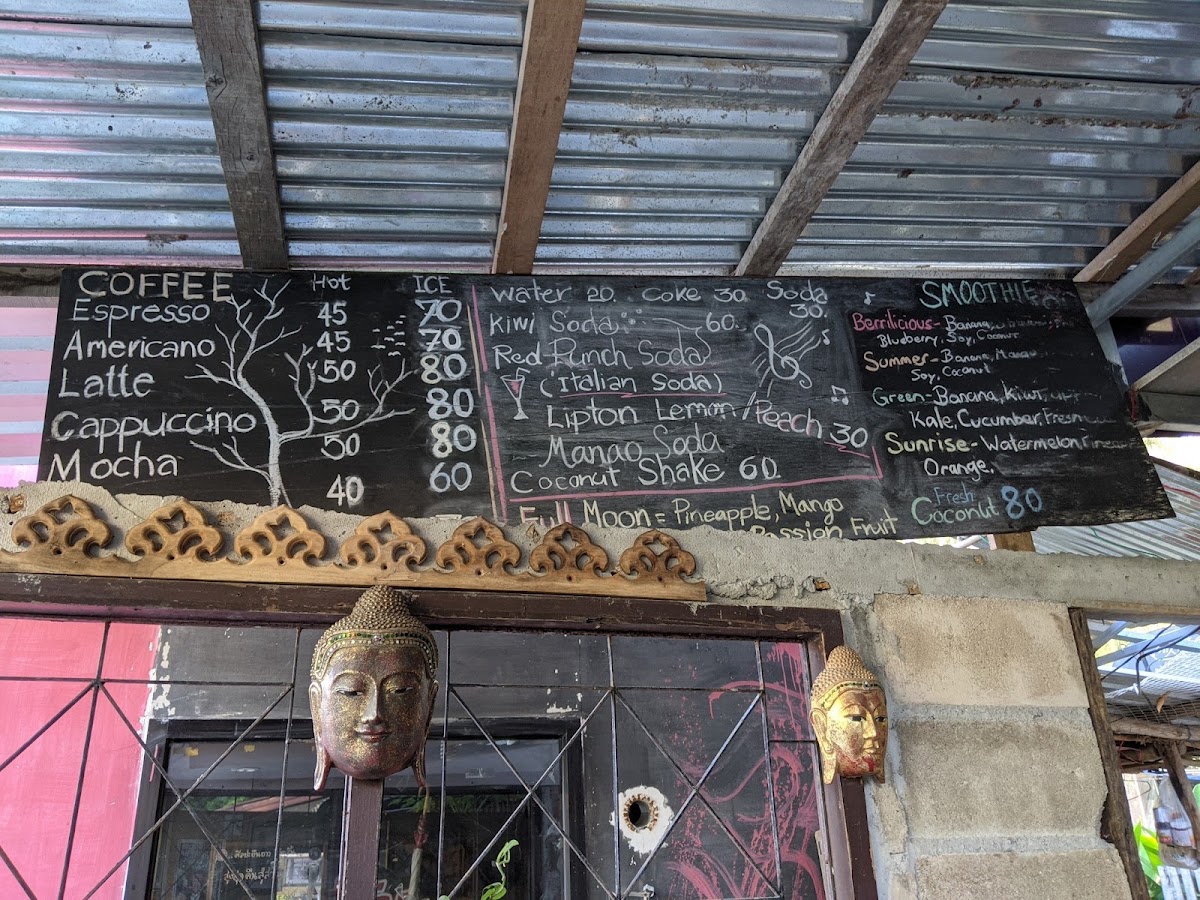 COFFEE Hot ICE
Espresso 45 70
Americano 45 70
Latte 50 80
Cappuccino 50 80
Mocha 50 80
40 60
Water 20. Coke 30. Soda 30.
Kiwi Soda 60.
Red Punch Soda
(Italian Soda)
Lipton Lemon / Peach 30
Manao Soda
Coconut Shake 60.
Full Moon = Pineapple, Mango
Passion Fruit
SMOOTHIE
Berrilicious - Banana,
Blueberry, Soy, Coconut
Summer - Banana, Mango
Soy, Coconut
Green - Banana, Kiwi,
Kale, Cucumber, Fresh
Sunrise - Watermelon,
Orange,
Fresh
Coconut 80